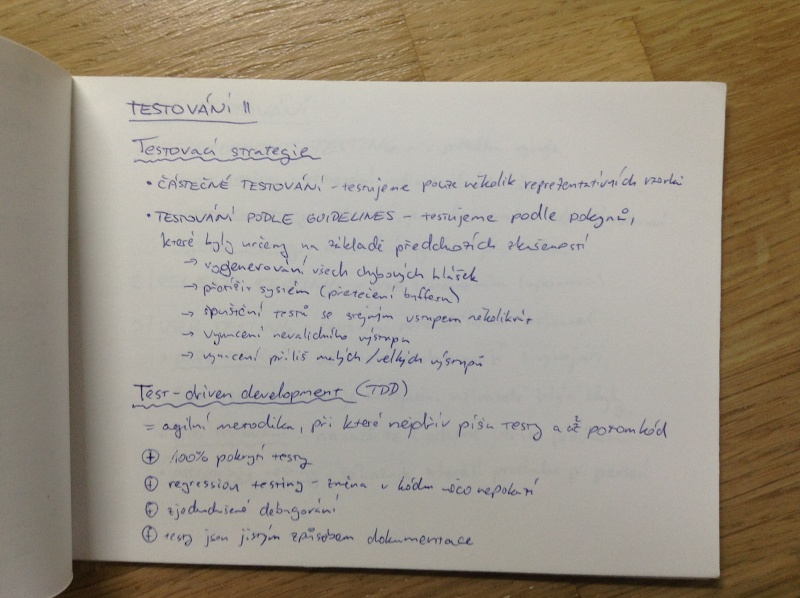 TESTOVÁNÍ II
Testovací strategie
• ČÁSTEČNÉ TESTOVÁNÍ - testujeme pouze několik reprezentativních vzorků
• TESTOVÁNÍ PODLE GUIDELINES - testujeme podle pokynů,
které byly určeny na základě předchozích zkušeností
→ vygenerování všech chybových hlášek
→ přetížit systém (přetečení bufferu)
→ spuštění testů se stejným vstupem několikrát
→ vynucení nevalidního výstupu
→ vynucení příliš malých/velkých výstupů
Test-driven development (TDD)
= agilní metodika, při které nejdřív píšu testy a až potom kód
⊕ 100% pokrytí testy
⊕ regression testing - změna v kódu něco nepokazí
⊕ zjednodušené debugování
⊕ testy jsou jistým způsobem dokumentace